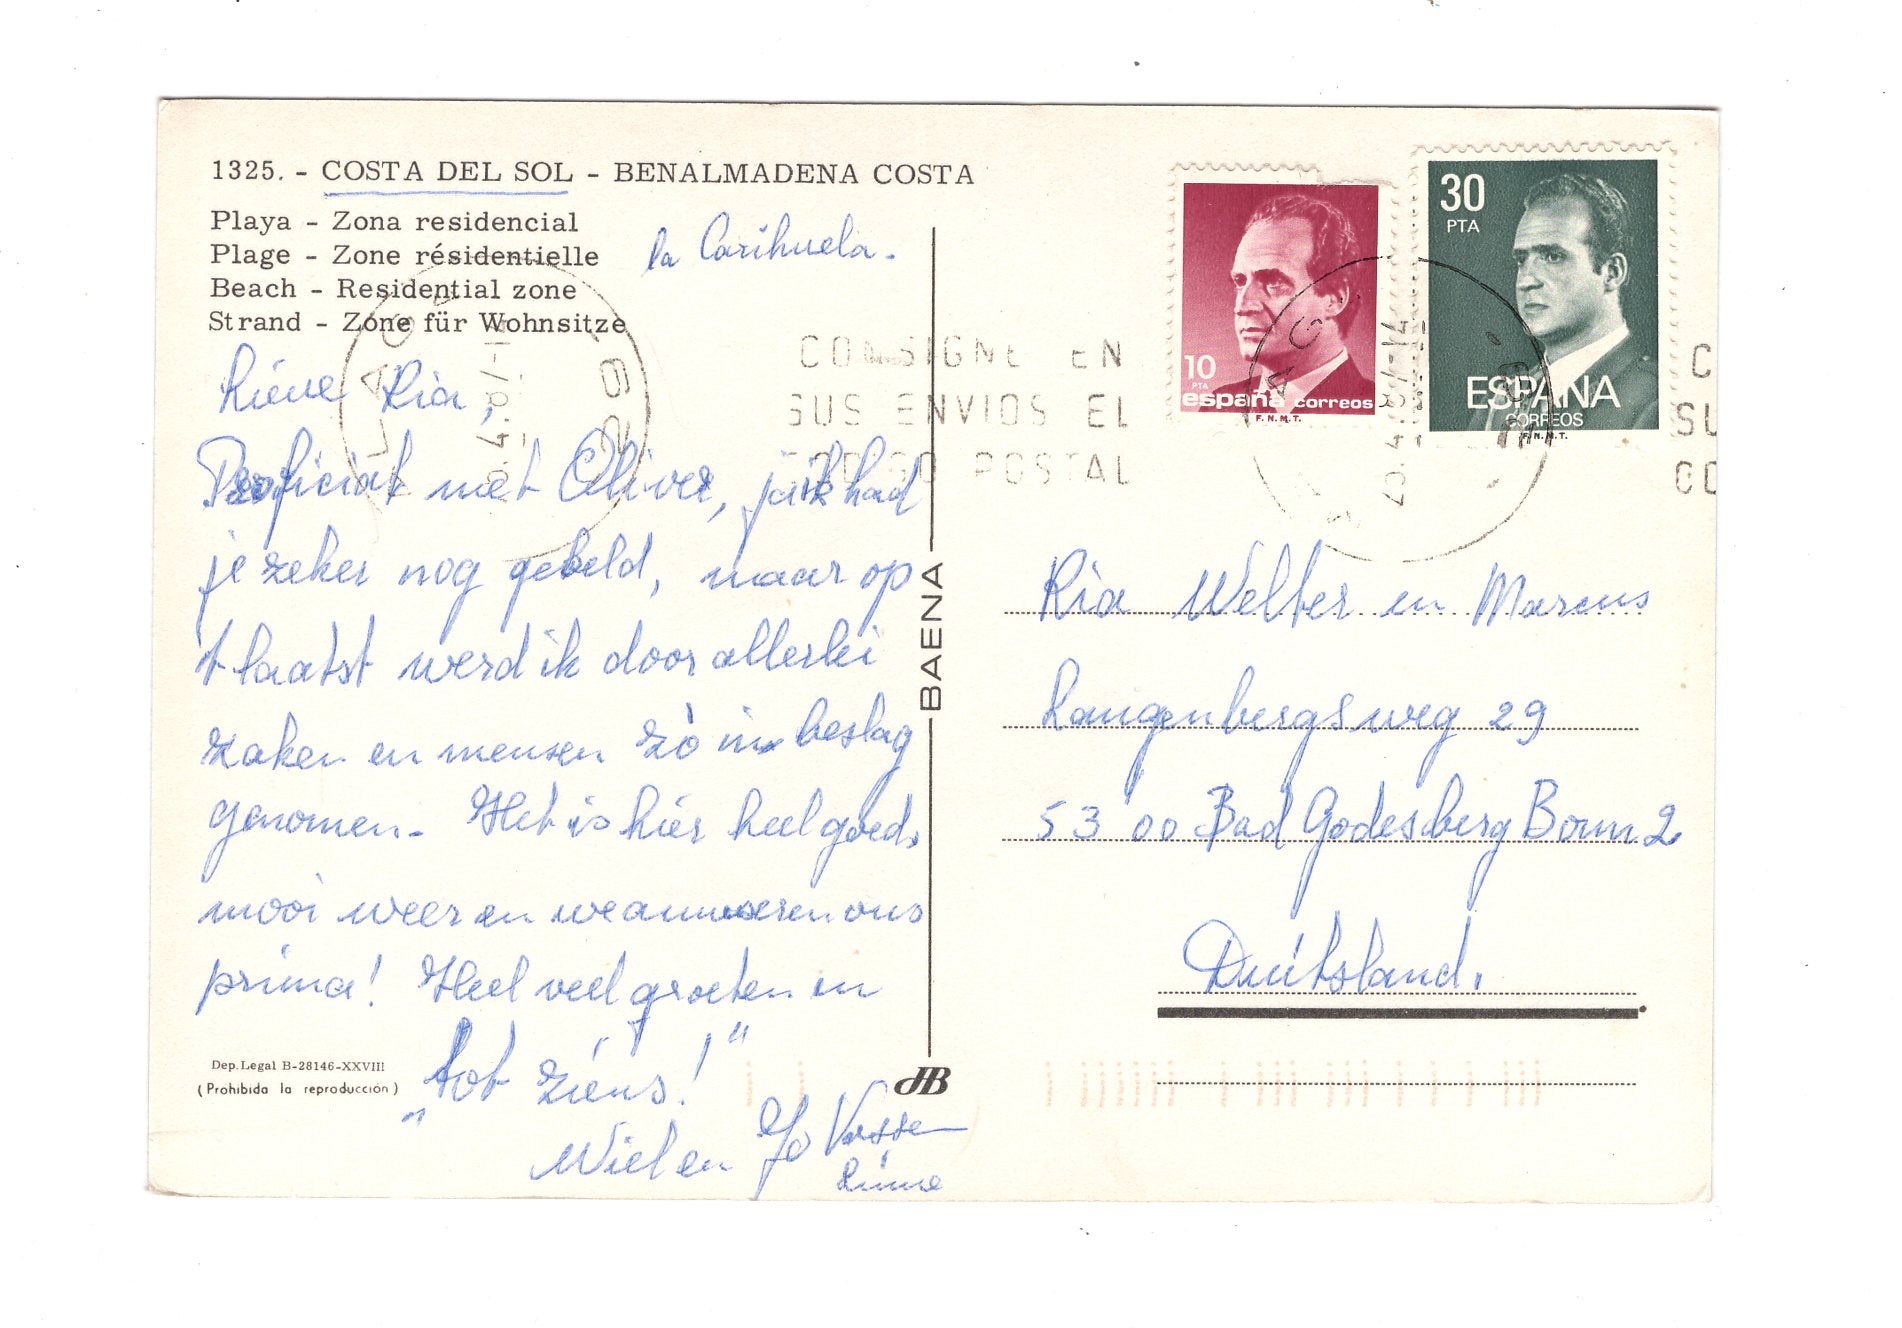 1325. - COSTA DEL SOL - BENALMADENA COSTA
Playa - Zona residencial
Plage - Zone résidentielle
Beach - Residential zone
Strand - Zone für Wohnsitze
la Carihuela.
Lieve Ria,
Proficiat met Oliver, ja ik had
je zeker nog gebeld, maar op
't laatst werd ik door allerlei
zaken en mensen zò in beslag
genomen. Het is hier heel goed,
mooi weer en we amuseren ons
prima! Heel veel groeten en
„tot ziens!"
Wiel en Jo Vossen
Dep. Legal B-28146-XXVIII
(Prohibida la reproducción)
BAENA
JB
CONSIGNE EN
SUS ENVIOS EL
CODIGO POSTAL
10
PTA
españa correos
F.N.M.T.
30
PTA
ESPAÑA
CORREOS
F.N.M.T.
C
SU
CO
Ria Welter en Marcus
Langenbergsweg 29
53 00 Bad Godesberg Bonn 2
Duitsland.